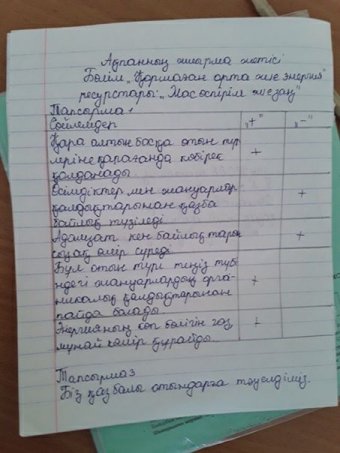 Ақпанның жиырма жетісі
Бөлім „Қоршаған орта және энергия
ресурстары". „Жасөспірім және заң"
Тапсырма 1
Сөйлемдер „+" „-"
Қара алтын басқа отын түр
леріне қарағанда көбірек +
қолданады
Өсімдіктер мен жануарлар +
қалдықтарынан қазба
байлық түзіледі
Адамзат кен байлықтарын +
сақтап өмір сүреді
Бұл отын түрі теңіз түбі
ндегі жануарлардың орга- +
никалық қалдықтарынан
пайда болады
Энергияның көп бөлігін газ, +
мұнай көмір құрайды.
Тапсырма 3
Біз қазбалы отындарға тәуелдіміз.